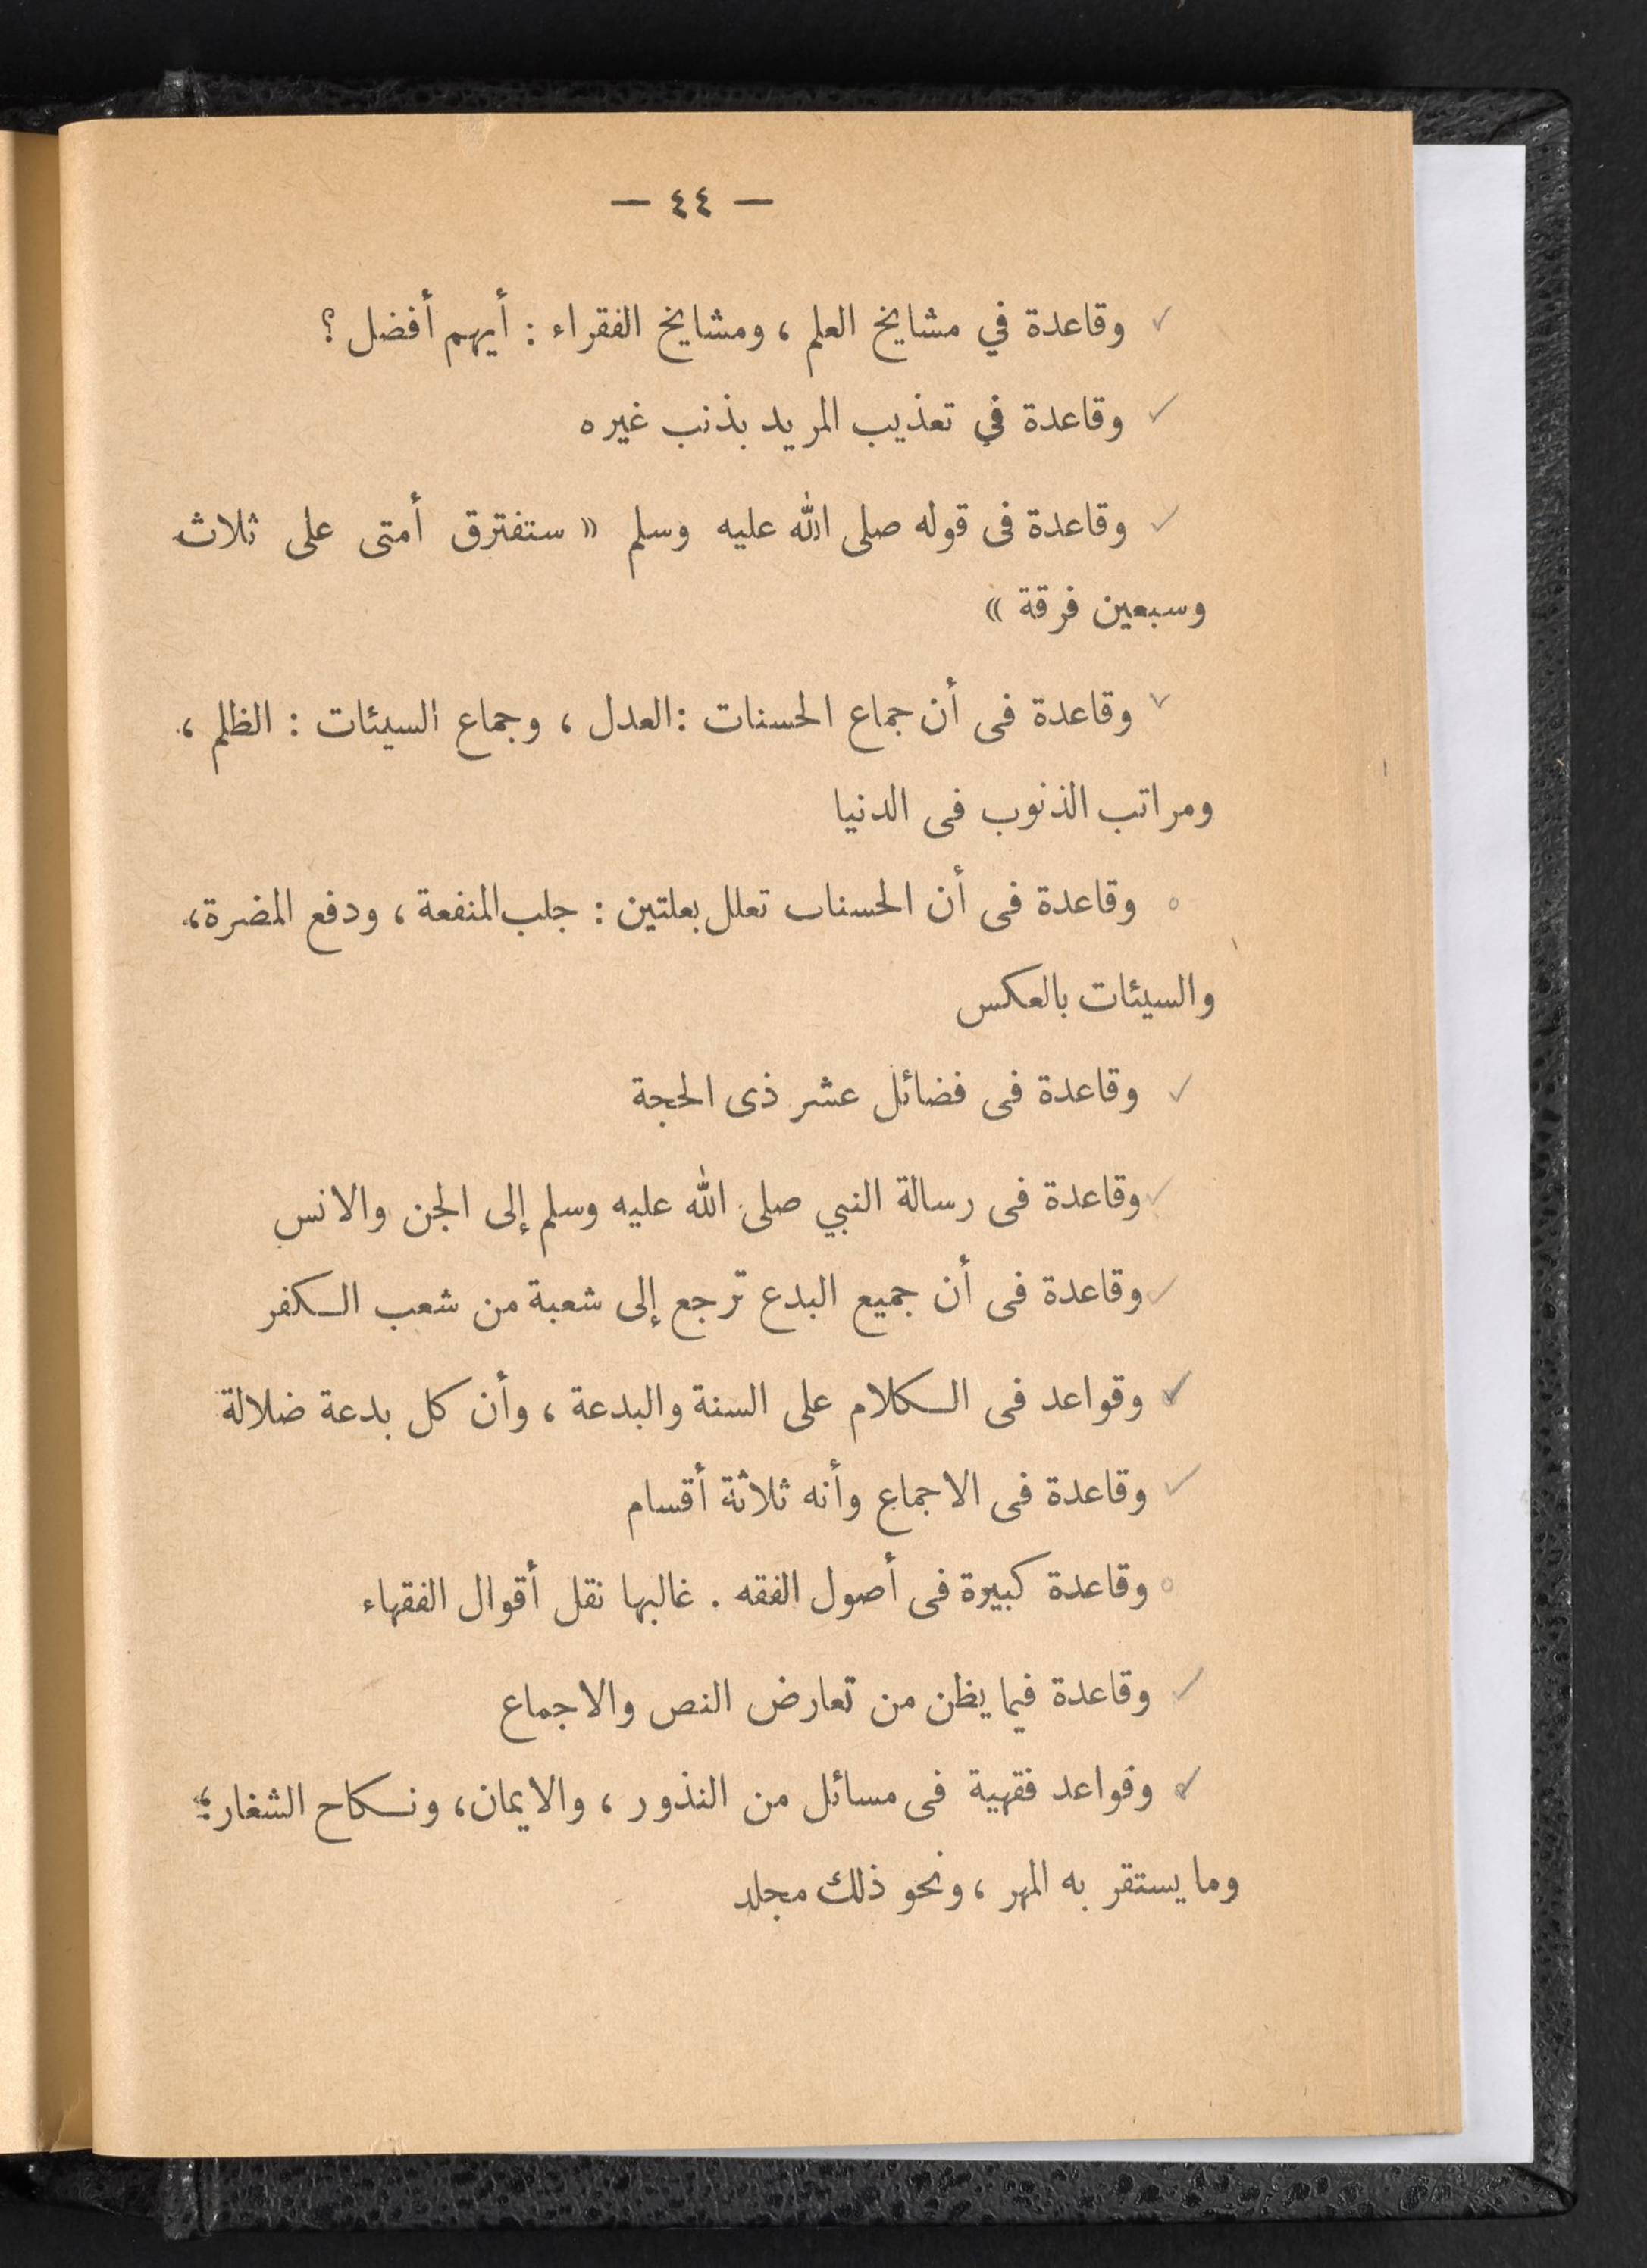 — ٤٤ —
وقاعدة في مشايخ العلم ، ومشايخ الفقراء : أيهم أفضل ؟
وقاعدة في تعذيب المريد بذنب غيره
وقاعدة فى قوله صلى الله عليه وسلم « ستفترق أمتى على ثلاث
وسبعين فرقة »
وقاعدة فى أن جماع الحسنات : العدل ، وجماع السيئات : الظلم ،
ومراتب الذنوب فى الدنيا
وقاعدة فى أن الحسنات تعلل بعلتين : جلب المنفعة ، ودفع المضرة ،
والسيئات بالعكس
وقاعدة فى فضائل عشر ذى الحجة
وقاعدة فى رسالة النبي صلى الله عليه وسلم إلى الجن والانس
وقاعدة فى أن جميع البدع ترجع إلى شعبة من شعب الكفر
وقواعد فى الكلام على السنة والبدعة ، وأن كل بدعة ضلالة
وقاعدة فى الاجماع وأنه ثلاثة أقسام
وقاعدة كبيرة فى أصول الفقه . غالبها نقل أقوال الفقهاء
وقاعدة فيما يظن من تعارض النص والاجماع
وقواعد فقهية فى مسائل من النذور ، والايمان ، ونكاح الشغار ،
وما يستقر به المهر ، ونحو ذلك مجلد